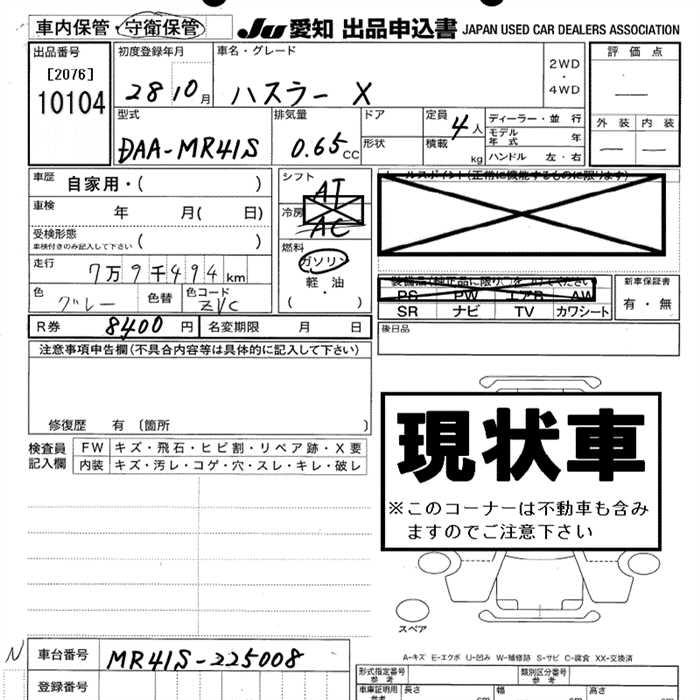 車内保管・守衛保管
JU 愛知 出品申込書 JAPAN USED CAR DEALERS ASSOCIATION
出品番号
[2076]
10104
初度登録年月
28 10月
車名・グレード
ハスラー X
2WD
・
4WD
評価点
外装 内装
型式
DAA-MR41S
排気量
0.65cc
ドア
形状
定員 4人
積載 kg
ディーラー・並行
モデル年式 年
ハンドル 左・右
車歴 自家用・( )
車検 年 月( 日)
受検形態
車検付きのみ記入して下さい ( )
走行 7万9千494km
色 グレー 色替 色コード ZVC
R券 8400円 名変期限 月 日
シフト AT
冷房 AC
燃料
ガソリン
軽油
( ・ )
セールスポイント(正常に機能するものに限ります)
装備品(純正品に限り○をつけてください)
PS PW エアB AW
SR ナビ TV カワシート
新車保証書
有・無
後日品
注意事項申告欄(不具合内容等は具体的に記入して下さい)
修復歴 有 〔箇所 〕
検査員記入欄
FW キズ・飛石・ヒビ割・リペア跡・X要
内装 キズ・汚レ・コゲ・穴・スレ・キレ・破レ
現状車
※このコーナーは不動車も含み
ますのでご注意下さい
スペア
A-キズ E-エクボ U-凹み W-補修跡 S-サビ C-腐食 XX-交換済
N
車台番号 MR41S-225008
登録番号
形式指定番号
参考
類別区分番号
参考
車庫証明用
参考
長さ cm
幅 cm
高さ cm